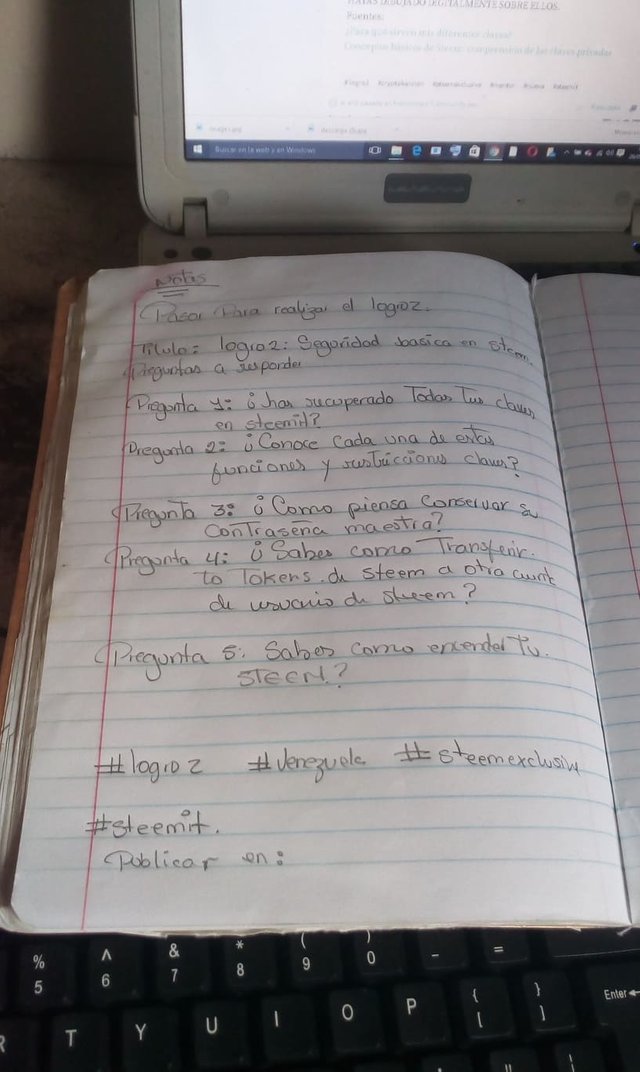 HAYAS DEBUTADO DIGITALMENTE SOBRE ELLOS.
Fuentes:
¿Para qué sirven mis diferentes claves?
Conceptos básicos de Steem: comprensión de las claves privadas
Buscar en la web y en Windows
Notas
Pasos Para realizar el logro2.
Titulo: logro2: Seguridad basica en steem.
Preguntas a responder
Pregunta 1: ¿has recuperado Todas Tus claves
en steemit?
Pregunta 2: ¿Conoce Cada una de estas
funciones y restricciones claves?
Pregunta 3: ¿Como piensa Conservar su
Contraseña maestra?
Pregunta 4: ¿Sabes como Transferir.
to Tokens de steem a otra cuenta
de usuario de steem?
Pregunta 5: Sabes como encender Tu.
STEEM?
#logro2 #Venezuela #steemexclusive
#steemit.
Publicar en:
% ^ & * ( ) - =
5 6 7 8 9 0
R T Y U I O P { [ } ] Enter